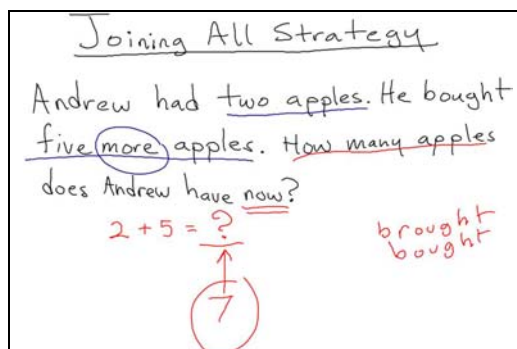 Joining All Strategy
Andrew had two apples. He bought
five more apples. How many apples
does Andrew have now?
2 + 5 = ?
brought
bought
7